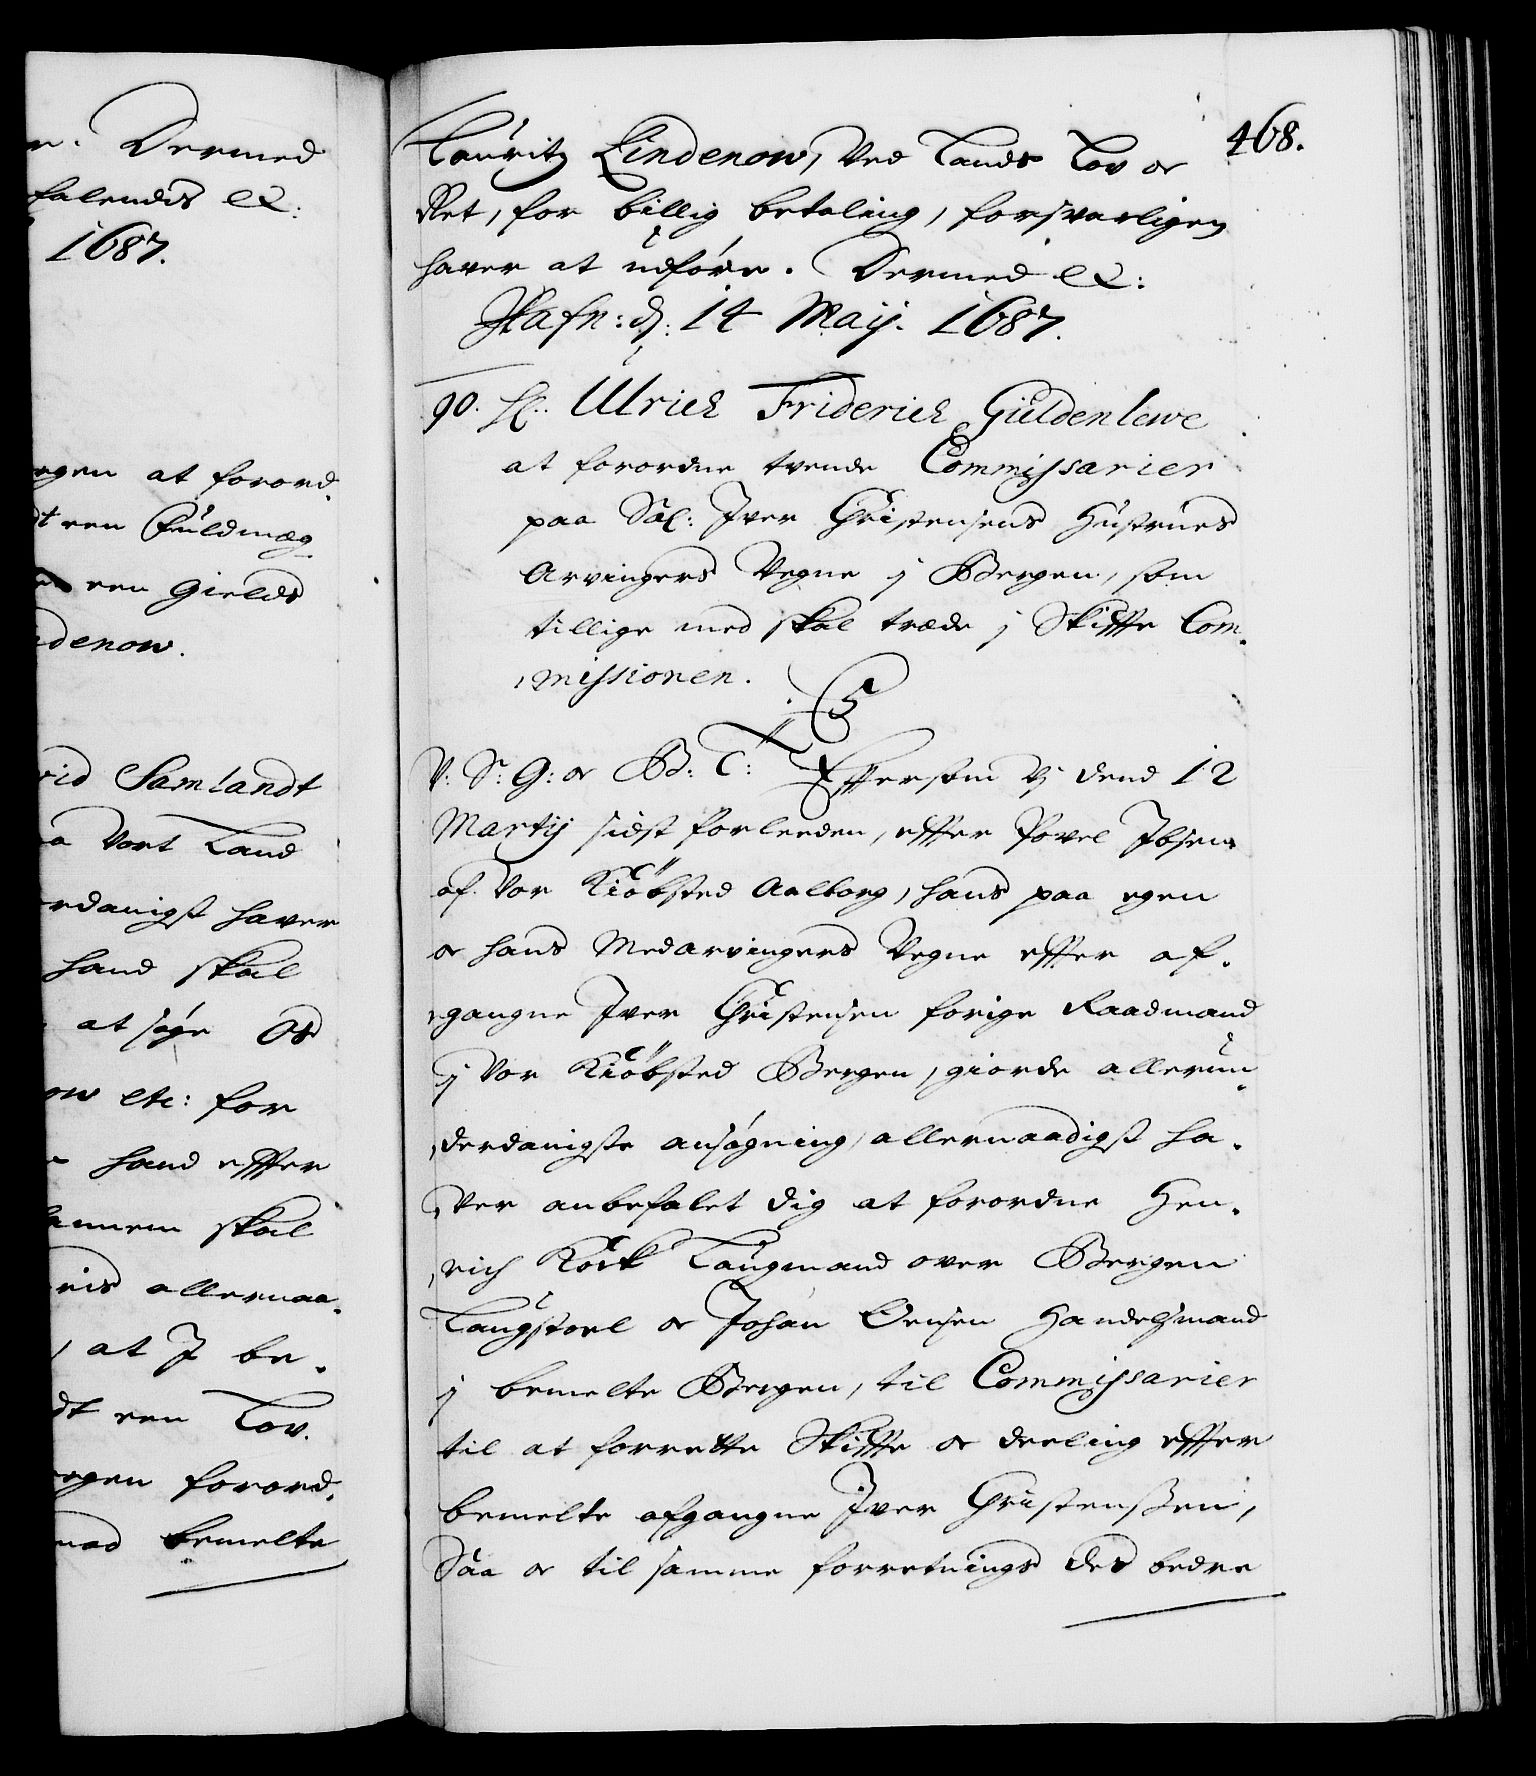 n. Dermed
falendis etc:
1687.
ergen at forord-
dt een Fuldmæg-
een Gields
ndenow.
vid Samlandt
a Vort Land
rdanigst haver
hand skal
at søge Os
ow etc: for
hand effter
annem skal
ris allernaa-
, at J be-
dt een Lov.
ergen forord-
mod bemelte
468.
Lauritz Lindenow, Ved Lands Lov oc
Ret, for billig betaling, forsvarligen
haver at udføre. Dermed etc:
Hafn: d: 14 Maij. 1687.
90. H: Ulrich Friderich Güldenlewe
at forordne tvende Commissarier
paa Sal: Iver Christensens Hustrues
Arvingers Vegne j Bergen, som
tillige med skal træde j Skiffte Com-
missionen.
C5
V: S: G: oc B: T: Efftersom Vj dend 12
Martij sidst forleeden, effter Povel Ibsens
af Vor Kiøbsted Aalborg, hans paa egen
oc hans Medarvingers Vegne effter af-
gangne Iver Christensen forige Raadmand
j Vor Kiøbsted Bergen, giorde allerun-
derdanigste ansøgning, allernaadigst ha-
ver anbefalet dig at forordne Hen-
rich Kock Laugmand over Bergen
Laugstoel oc Johan Ovesen Handelsmand
j bemelte Bergen, til Commissarier
til at forrette Skiffte oc deeling effter
bemelte afgangne Iver Christenssen,
Saa oc til samme forretnings des bedre